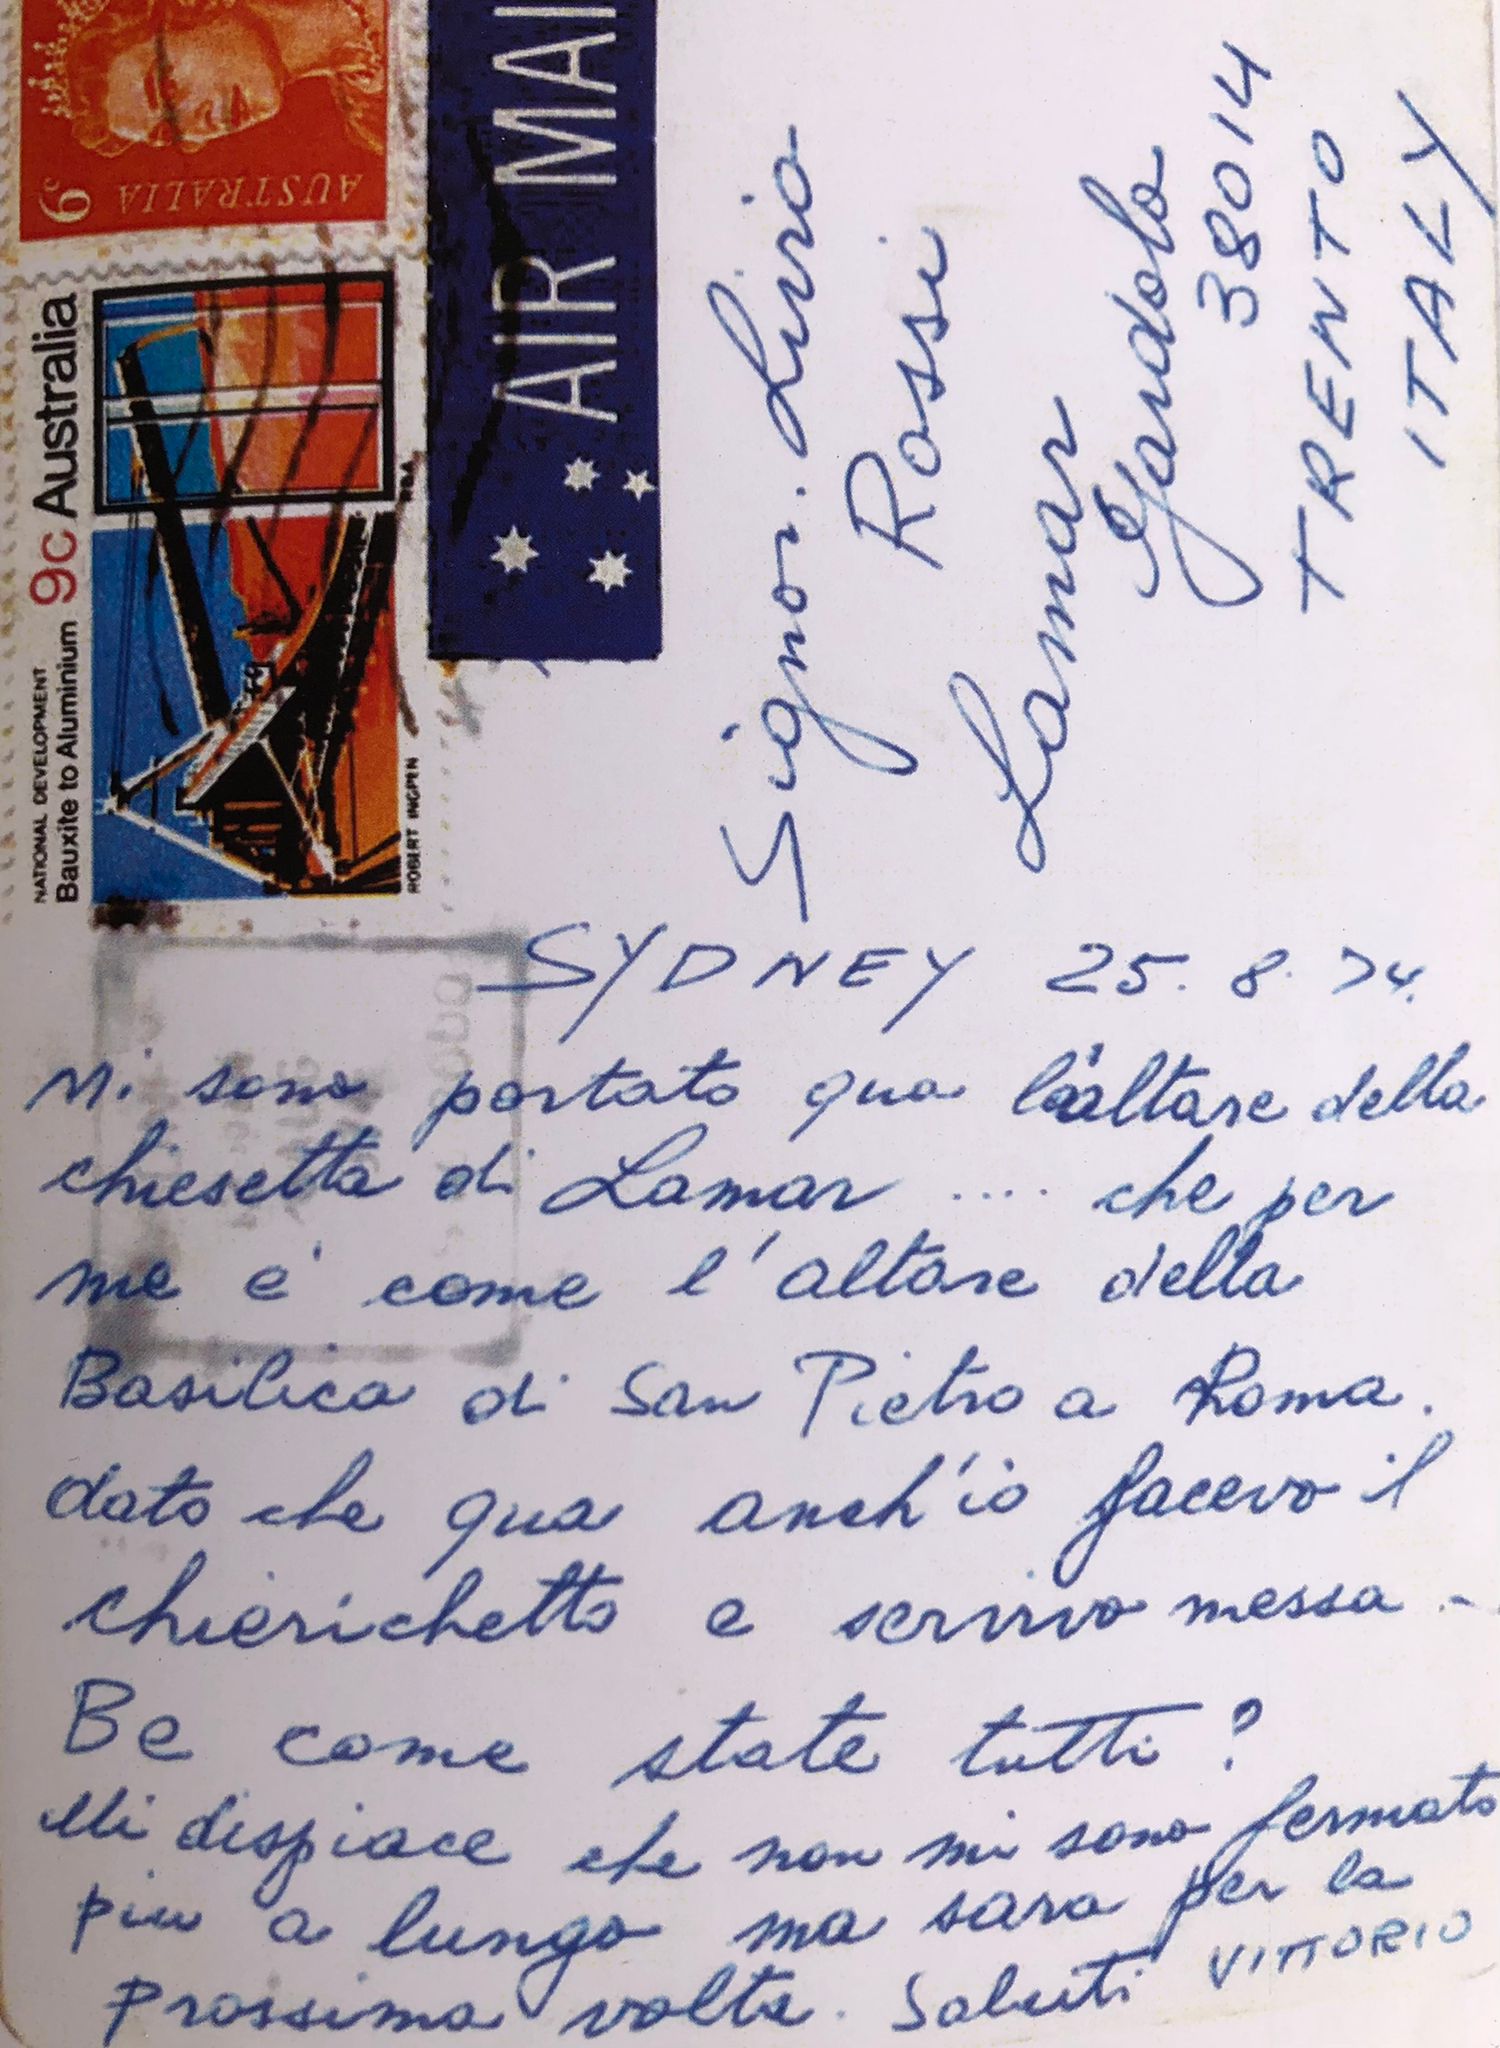 6c AUSTRALIA
NATIONAL DEVELOPMENT
Bauxite to Aluminium 9c Australia
ROBERT INGPEN RBA
AIR MAI
Signor. Livio
Rossi
Lamar
Gardolo
38014
TRENTO
ITALY
SYDNEY 25. 8. 74.
Mi sono portato qua l'altare della
chiesetta di Lamar .... che per
me e' come l'altare della
Basilica di San Pietro a Roma.
dato che qua anch'io facevo il
chierichetto e servivo messa -.
Be come state tutti?
Mi dispiace che non mi sono fermato
piu a lungo ma sara per la
Prossima volta. Saluti VITTORIO